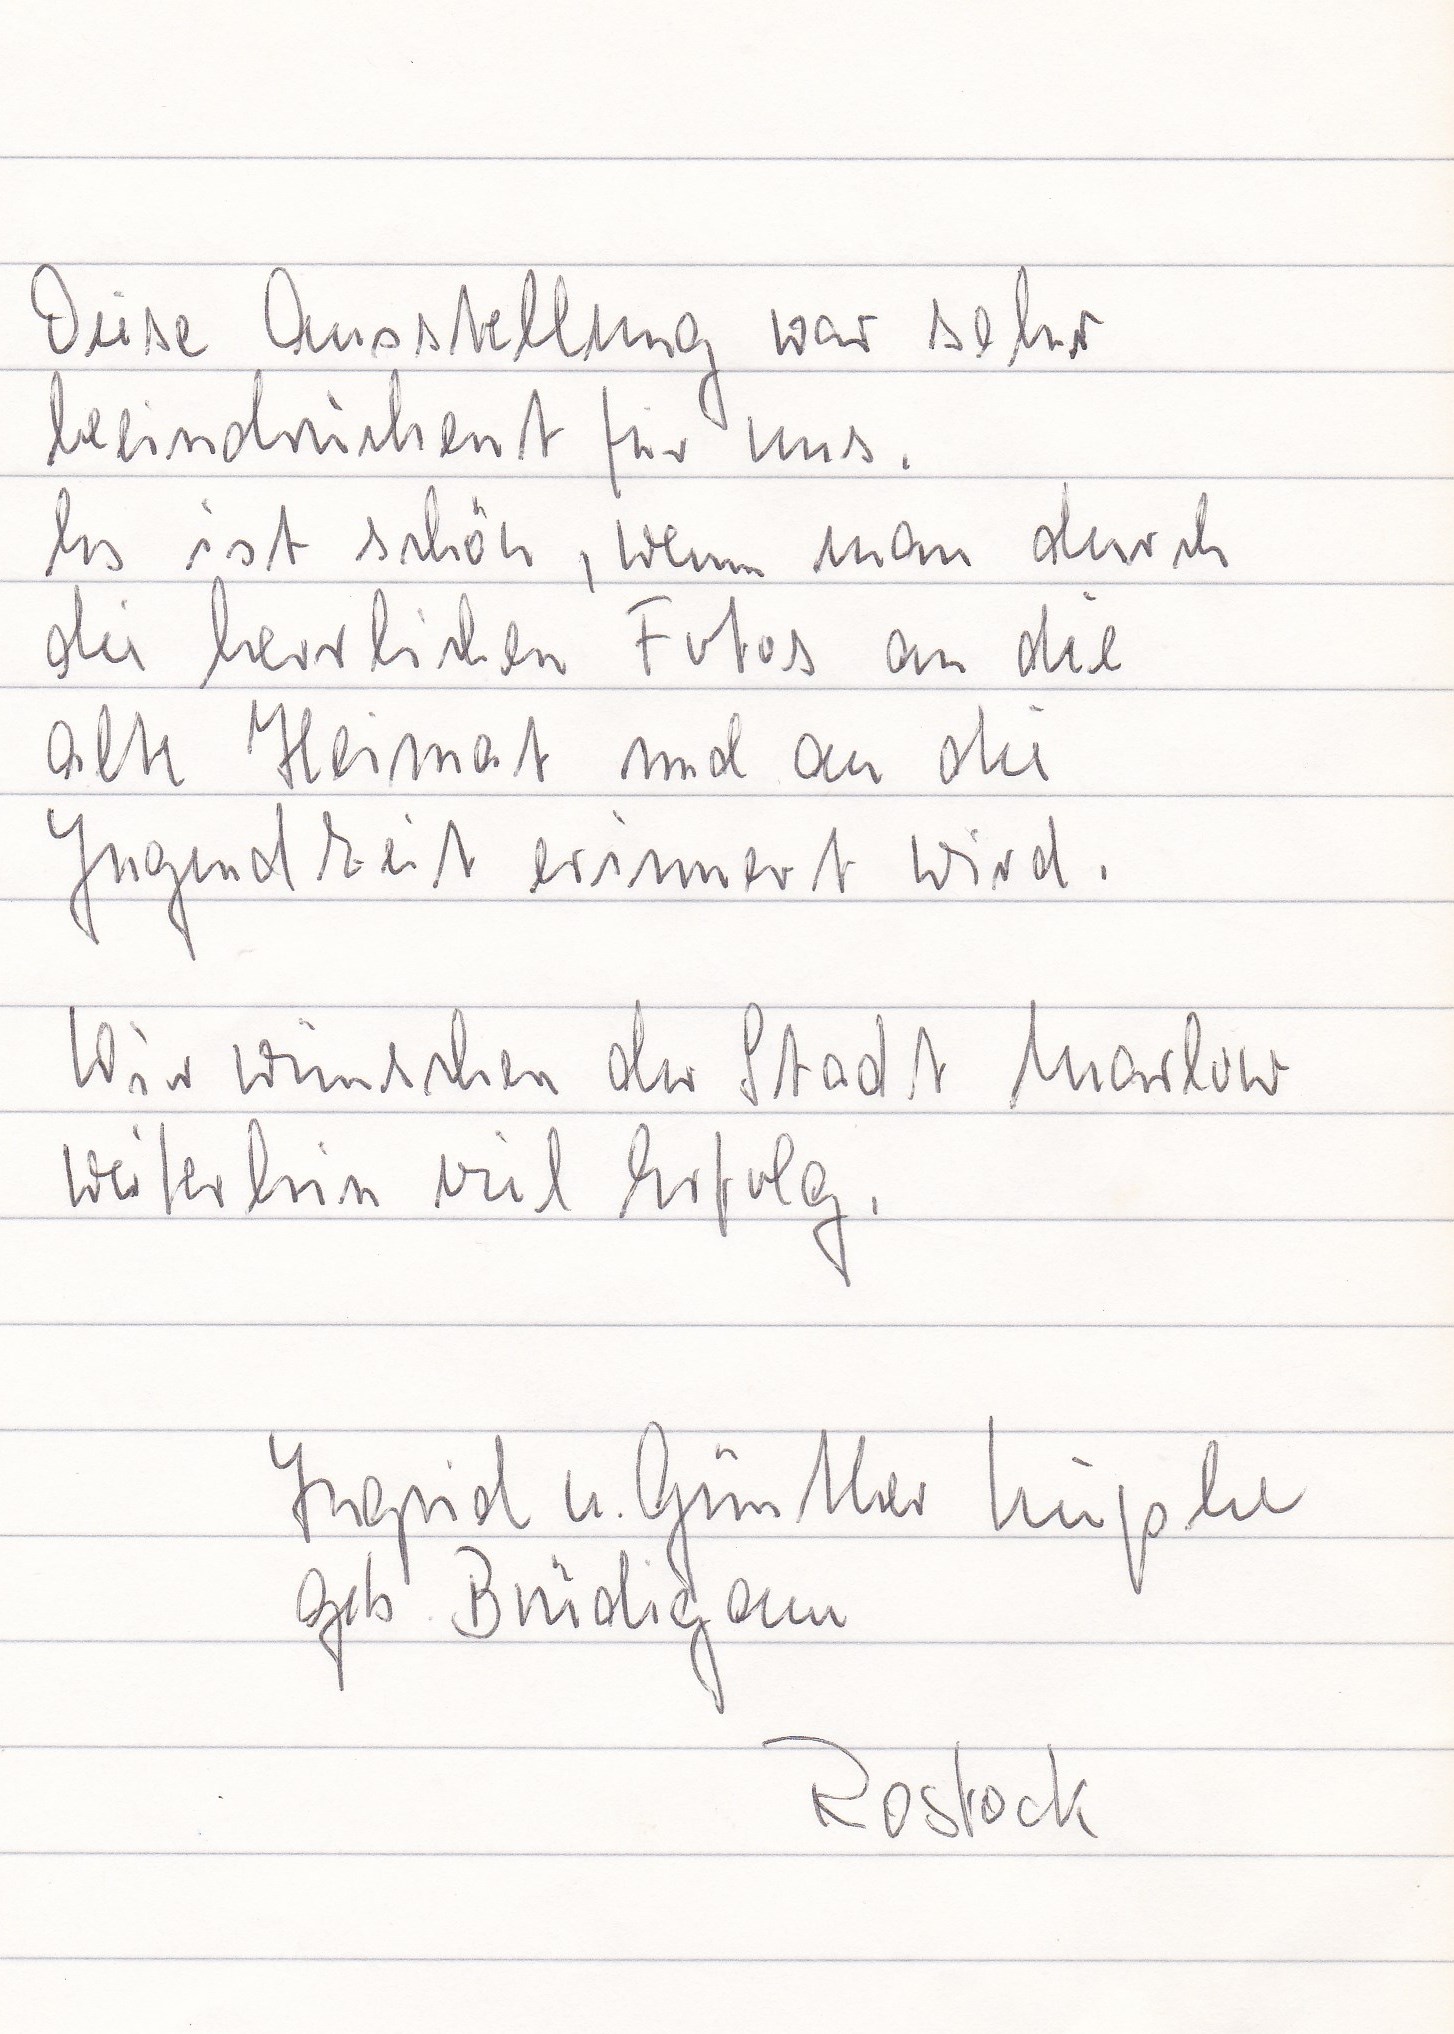 Diese Ausstellung war sehr
beeindruckent für uns.
Es ist schön, wenn man durch
die herrlichen Fotos an die
alte Heimat und an die
Jugendzeit erinnert wird.
Wir wünschen der Stadt Marlow
weiterhin viel Erfolg.
Ingrid u. Günther
geb. Brüdigam
Rostock